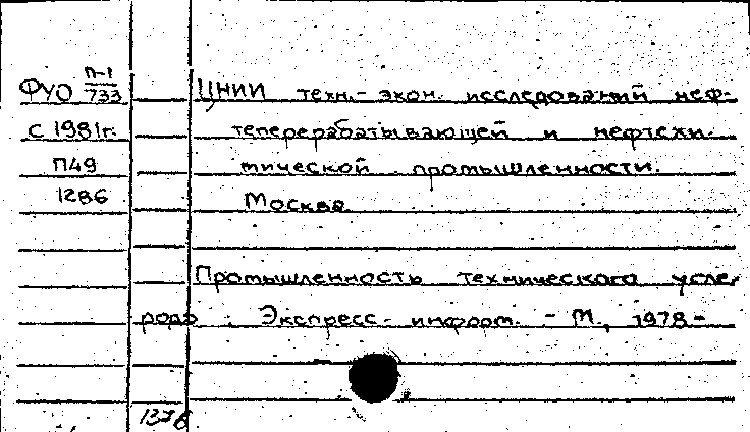 ФУО П-1/733
с 1981г.
П49
1286
ЦНИИ техн.- экон. исследований неф-
теперерабатывающей и нефтехи-
мической промышленности.
Москва.
Промышленность технического угле-
рода. Экспресс-информ. - М., 1978-
1376